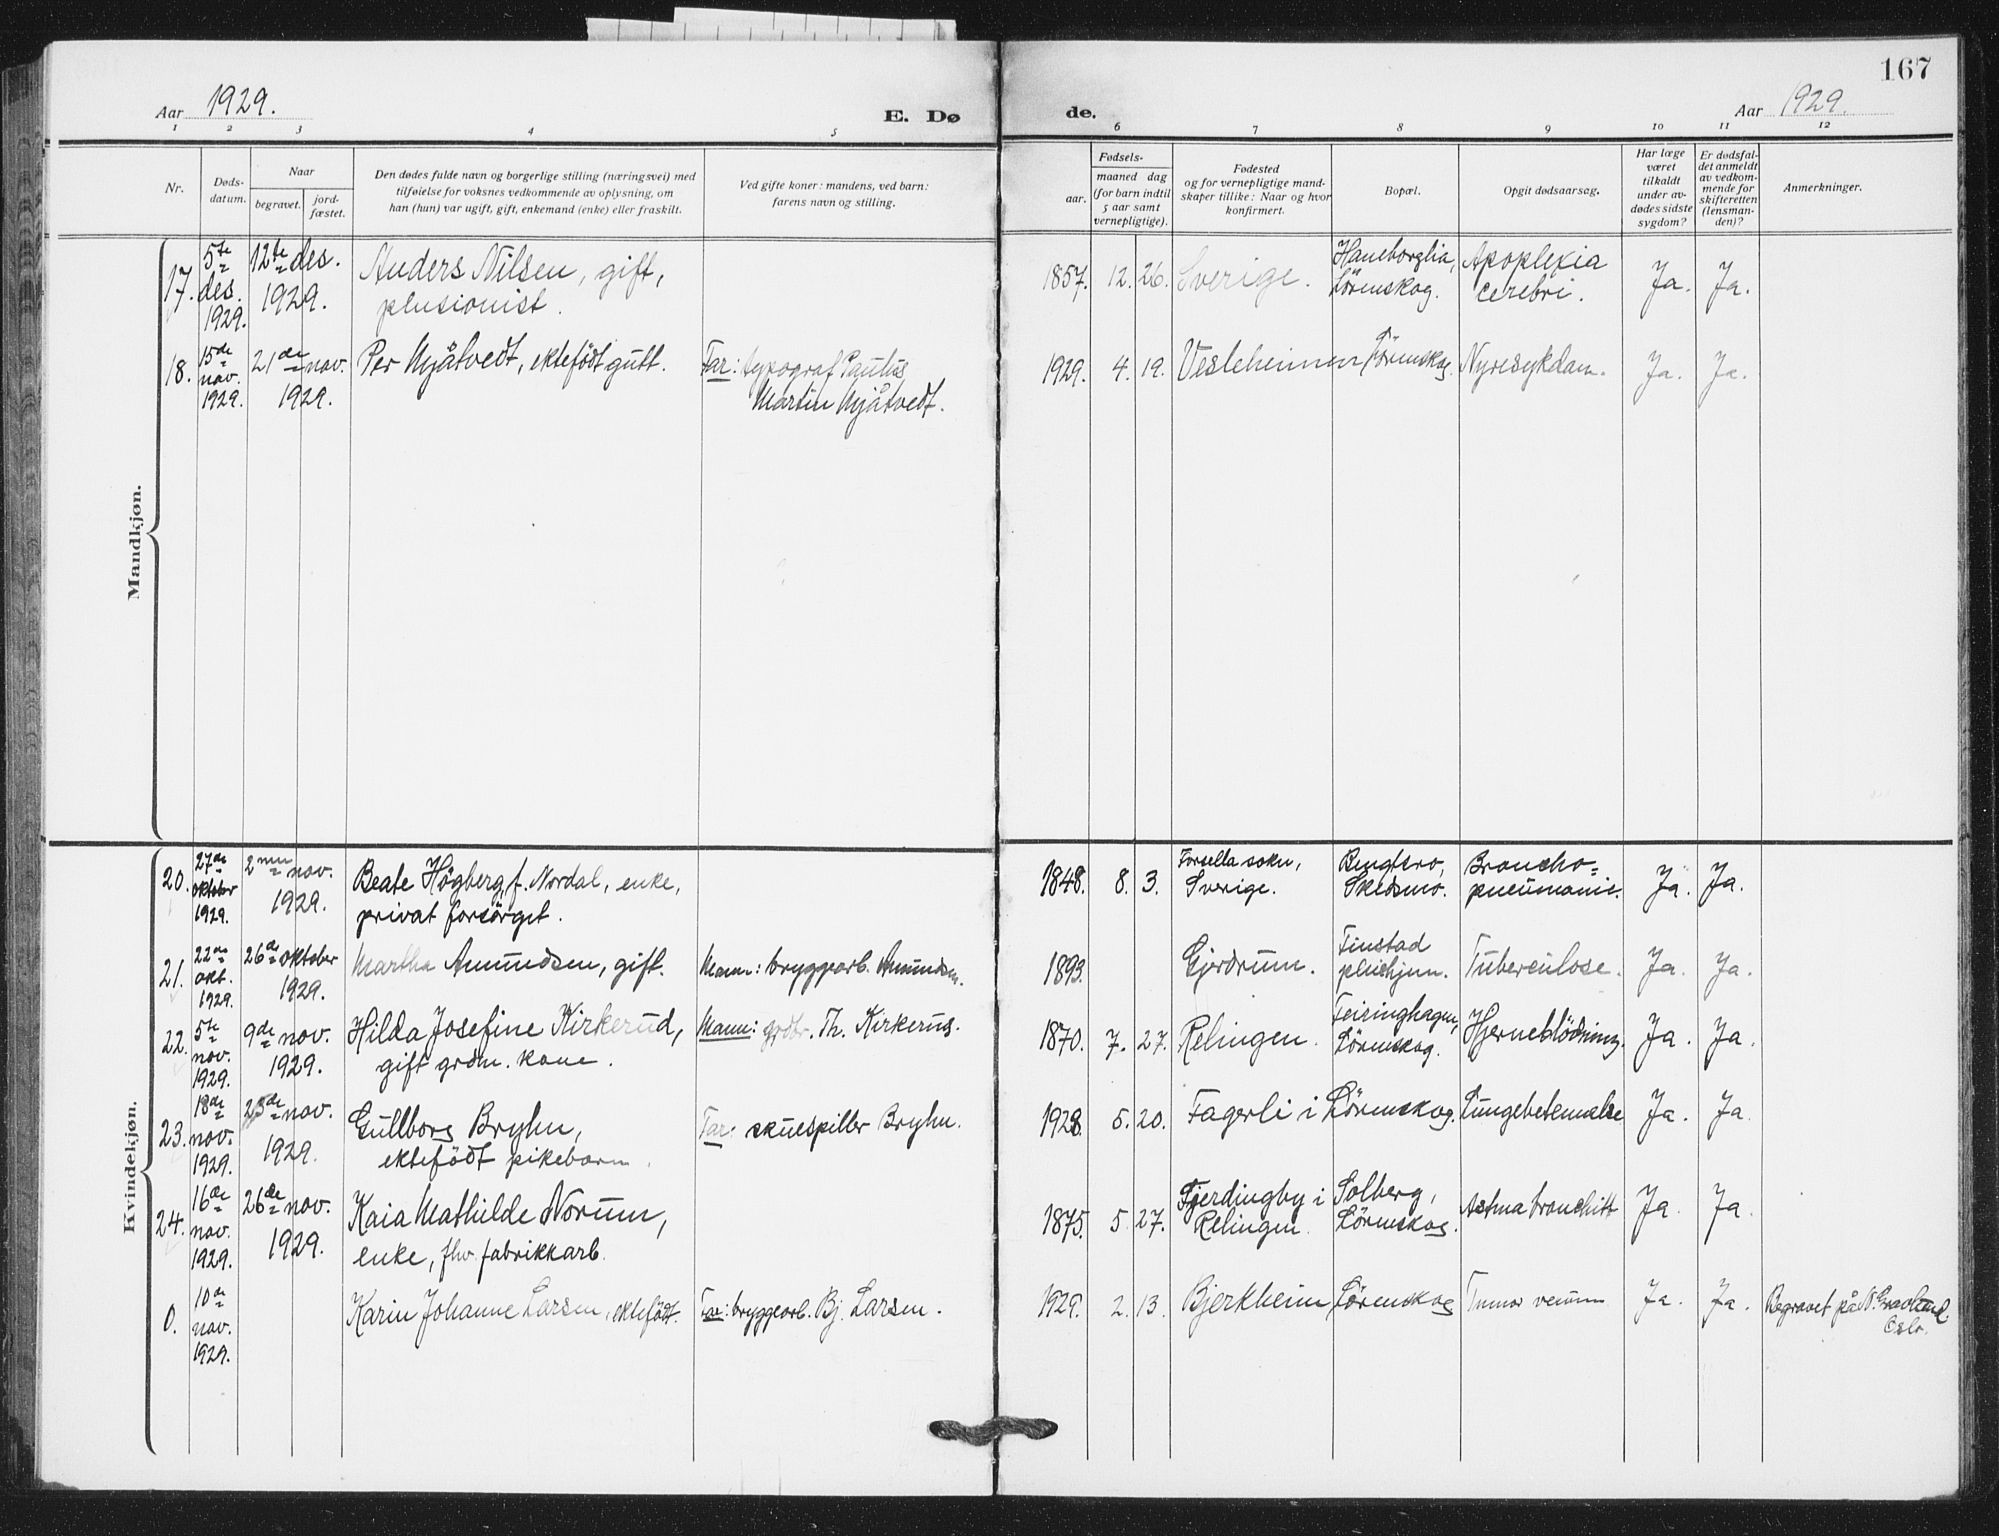 167
Aar 1929.
E. Dø
de.
Aar 1929.
1 2 3 4 5 6 7 8 9 10 11 12
Nr.
Døds-
datum.
Naar
begravet.
jord-
fæstet.
Den dødes fulde navn og borgerlige stilling (næringsvei) med
tilføielse for voksnes vedkommende av oplysning, om
han (hun) var ugift, gift, enkemand (enke) eller fraskilt.
Ved gifte koner: mandens, ved barn:
farens navn og stilling.
Fødsels-
aar.
maaned dag
(for barn indtil
5 aar samt
vernepligtige).
Fødested
og for vernepligtige mand-
skaper tillike: Naar og hvor
konfirmert.
Bopæl.
Opgit dødsaarsag.
Har læge
været
tilkaldt
under av-
dødes sidste
sygdom?
Er dødsfal-
det anmeldt
av vedkom-
mende for
skifteretten
(lensman-
den)?
Anmerkninger.
Mandkjøn.
17.
5te
des.
1929.
12te des.
1929.
Anders Nilsen, gift,
pensionist.
1857. 12. 26.
Sverige.
Haneborglia,
Lörenskog.
Apoplexia
cerebri.
Ja. Ja.
18.
15de
nov.
1929.
21de nov.
1929.
Per Myåtvedt, ektefödt gutt.
Far: typograf Paulus
Martin Myåtvedt.
1929. 4. 19.
Vesleheimen
Lörenskog.
Nyresykdam.
Ja. Ja.
Kvindekjøn.
20.
27de
oktober
1929.
2nen nov.
1929.
Beate Högberg f. Nordal, enke,
privat forsörget.
1848. 8. 3.
Forsella sokn,
Sverige.
Bengtsro,
Skedsmo.
Broncho=
pneumonie.
Ja. Ja.
21.
22de
okt.
1929.
26de oktober
1929.
Martha Amundsen, gift.
Mann: bryggearb. Amundsen.
1893.
Gjerdrum.
Finstad
pleiehjem.
Tuberculose.
Ja. Ja.
22.
5te
nov.
1929.
9de nov.
1929.
Hilda Josefine Kirkerud,
gift grdm. kone.
Mann: grdbr. Th. Kirkerud.
1870. 7. 27.
Relingen.
Feiringhagen,
Lörenskog.
Hjerneblödning.
Ja. Ja.
23.
18de
nov.
1929.
23de nov.
1929.
Gullborg Bryhn,
ektefödt pikebarn.
Far: skuespiller Bryhn.
1928. 5. 20.
Fagerli i
Lörenskog.
Lungebetennelse
Ja. Ja.
24.
16de
nov.
1929.
26de nov.
1929.
Kaia Mathilde Norum,
enke, fhv. fabrikkarb.
1875. 5. 27.
Fjerdingby i
Relingen.
Solberg,
Lörenskog.
Astma bronchitt
Ja. Ja.
0.
10de
nov.
1929.
Karin Johanne Larsen, ektefödt.
Far: bryggearb. Bj. Larsen.
1929. 2. 13.
Bjerkheim
Lörenskog
Ja. Ja.
Begravet på N. Gravlund
Oslo.